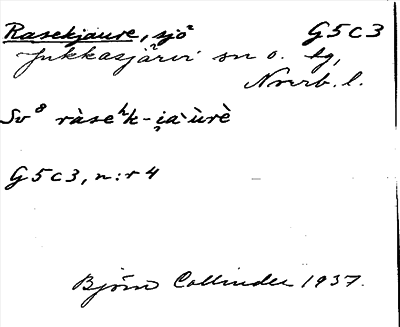 Rasekjaure, sjö G5c3
Jukkasjärvi sn o. tg,
Nrrb. l.
Sv⁸ ràseʰk-i̯a`ùrè
G5c3, n:r 4
Björn Collinder 1937.